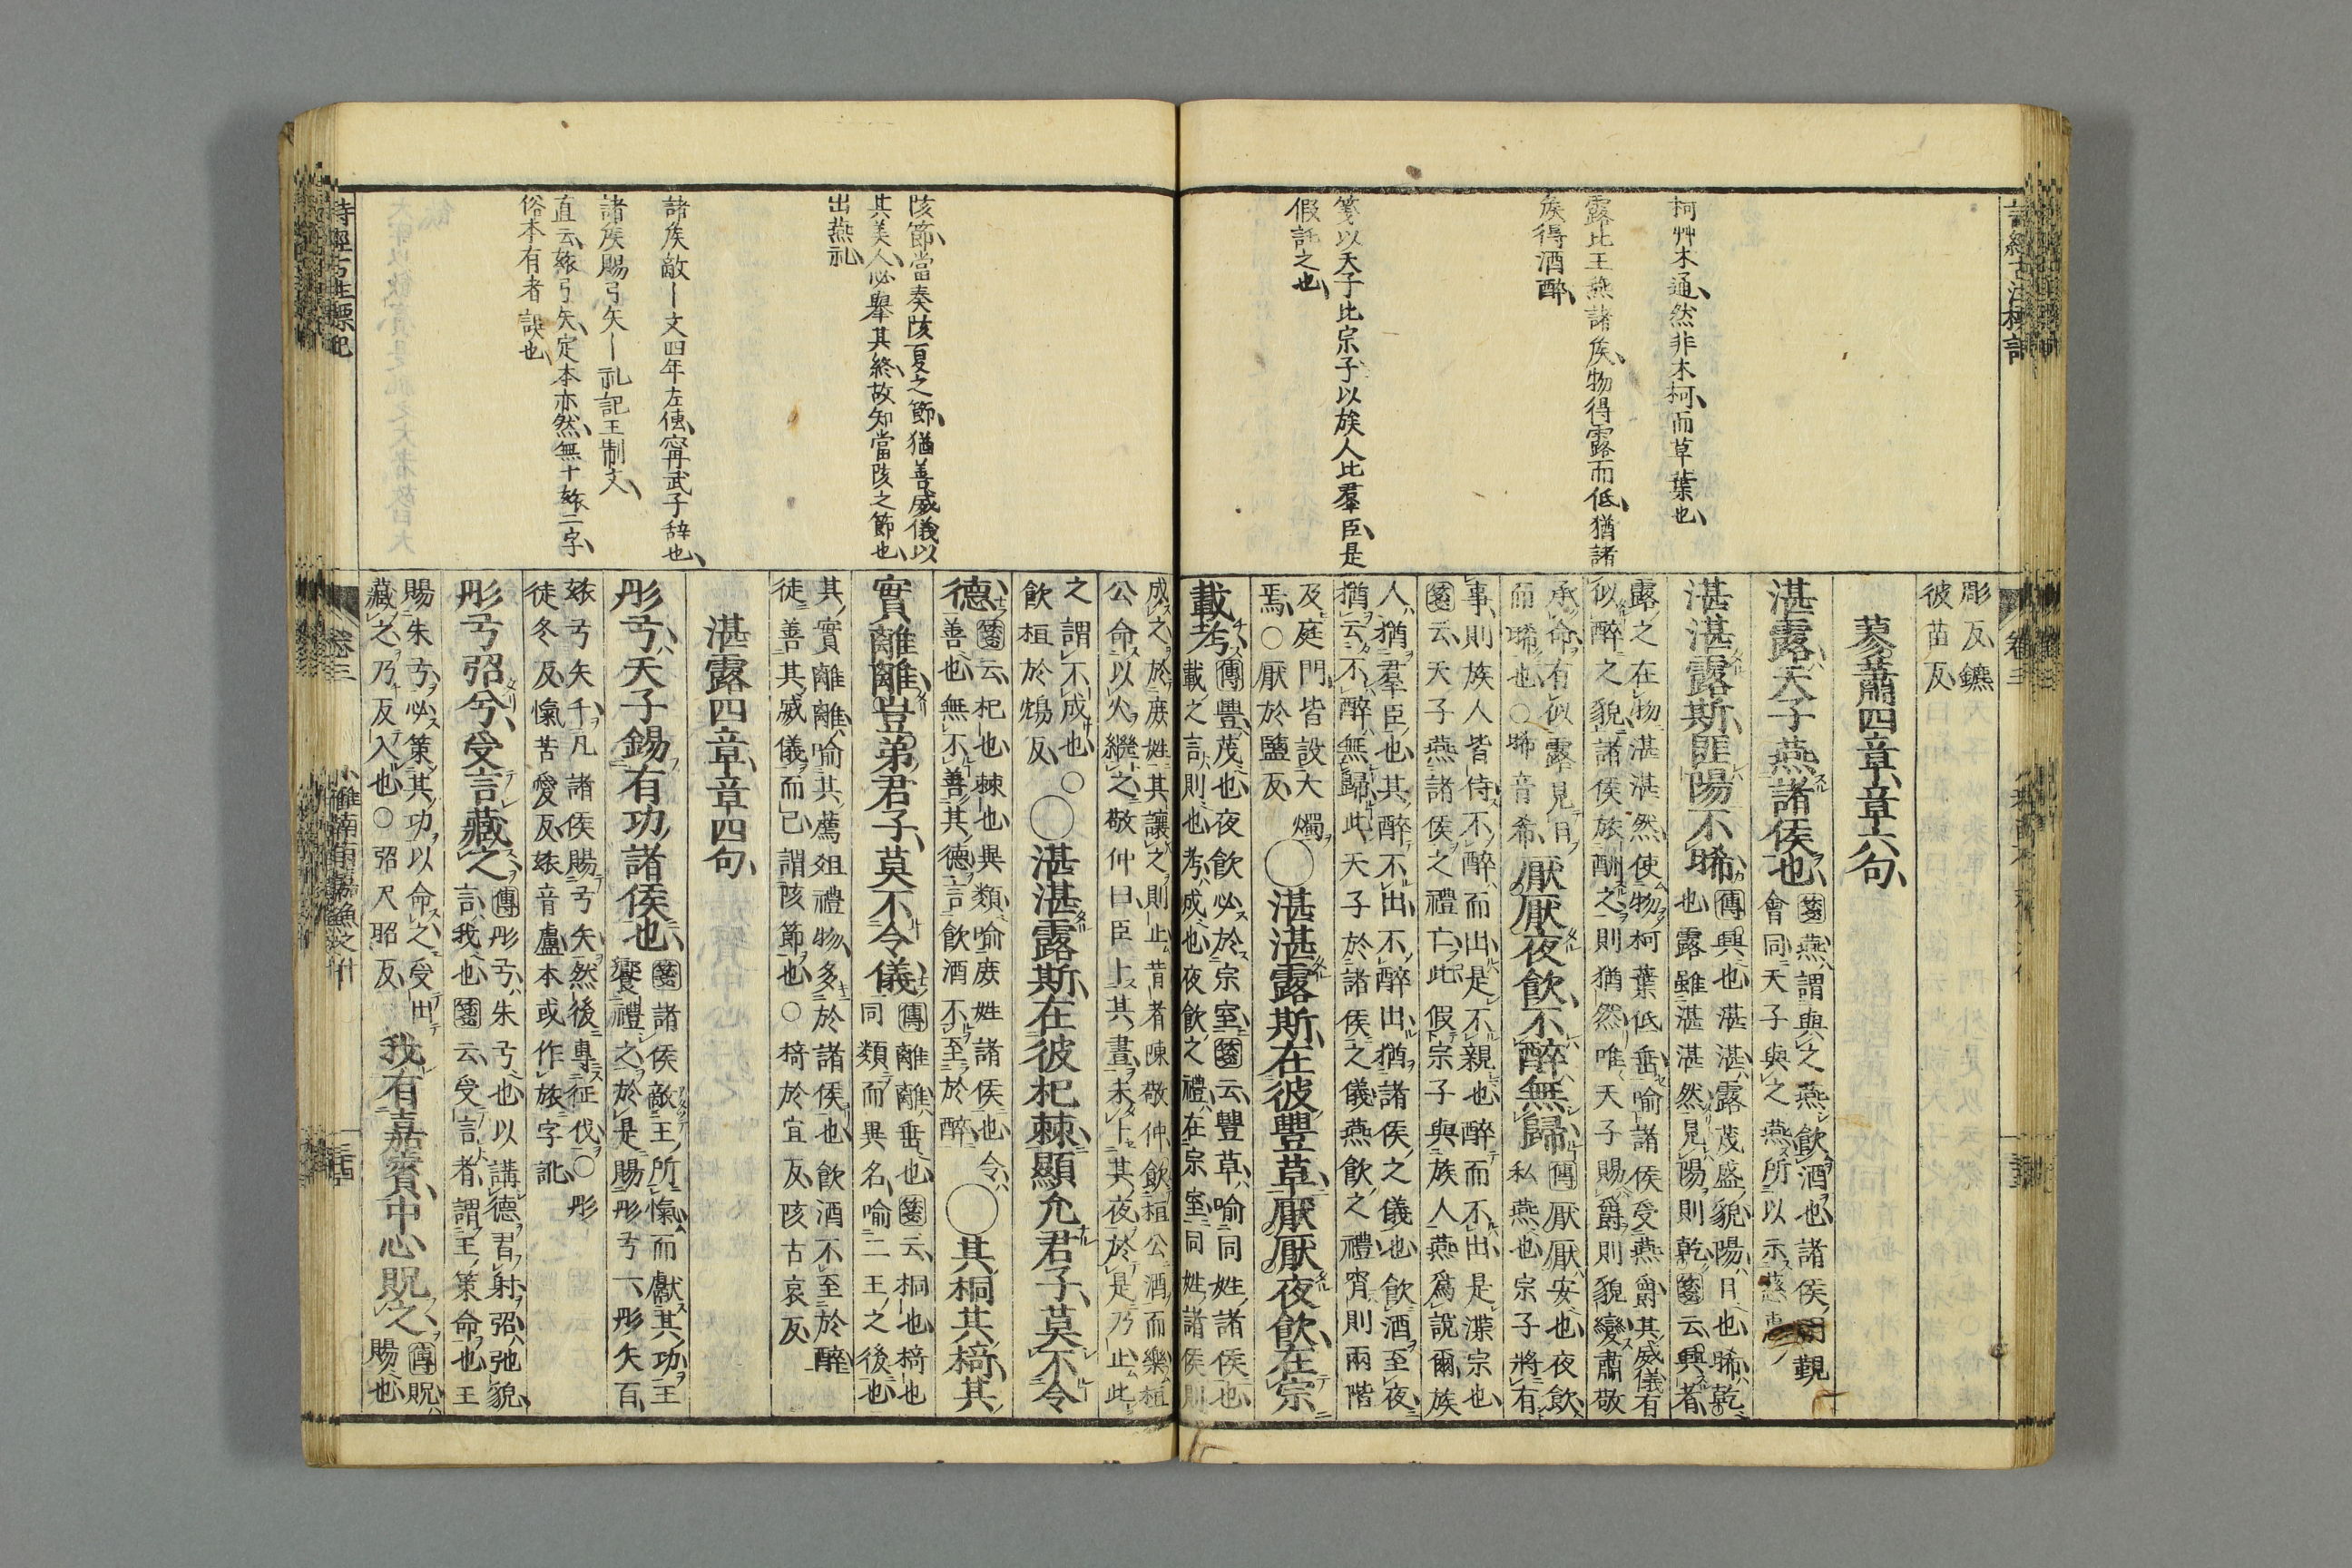 柯艸木通然非木柯而草葉也
露比王燕諸侯物得露而低猶諸
侯得酒醉
箋以天子比宗子以族人比羣臣是
假託之也
彫反鑣
彼苗反
蓼蕭四章章六句
湛露天子燕諸侯也
箋燕謂與之燕飲酒也諸侯朝覲
會同天子與之燕所以示慈惠
湛湛露斯匪陽不晞
傳興也湛湛露茂盛貌陽日也晞乾
也露雖湛湛然見陽則乾箋云興者
露之在物湛湛然使物柯葉低垂喻諸侯受燕爵其威儀有
似醉之貌諸侯族酬之則猶然唯天子賜爵則貌變肅敬
承命有似露見日
而晞也○晞音希
厭厭夜飲不醉無歸
傳厭厭安也夜飲
私燕也宗子將有
事則族人皆侍不醉而出是不親也醉而不出是渫宗也
箋云天子燕諸侯之禮亡此假宗子與族人燕爲說爾族
人猶羣臣也其醉不出不醉出猶諸侯之儀也飲酒至夜
猶云不醉無歸此天子於諸侯之儀燕飲之禮宵則兩階
及庭門皆設大燭
焉○厭於鹽反
○湛湛露斯在彼豐草厭厭夜飲在宗
載考
傳豐茂也夜飲必於宗室箋云豐草喻同姓諸侯也
載之言則也考成也夜飲之禮在宗室同姓諸侯則
陔節當奏陔夏之節猶善威儀以
其美人必舉其終故知當陔之節也
出燕礼
諸侯敵一文四年左傳甯武子辞也
諸侯賜弓矢一礼記王制文
直云玈弓矢定本亦然無十玈二字
俗本有者誤也
成之於庶姓其讓之則止昔者陳敬仲飲桓公酒而樂桓
公命以火繼之敬仲曰臣卜其晝未卜其夜於是乃止此
之謂不成也○
飲桓於鴆反
○湛湛露斯在彼杞棘顯允君子莫不令
德
箋云杞也棘也異類喻庶姓諸侯也令
善也無不善其德言飲酒不至於醉
○其桐其椅其
實離離豈弟君子莫不令儀
傳離離垂也箋云桐也椅也
同類而異名喻二王之後也
其實離離喻其薦俎禮物多於諸侯也飲酒不至於醉
徒善其威儀而已謂陔節也○椅於宜反陔古哀反
湛露四章章四句
彤弓天子錫有功諸侯也
箋諸侯敵王所愾而獻其功王
饗禮之於是賜彤弓一彤矢百
玈弓矢千凡諸侯賜弓矢然後專征伐○彤
徒冬反愾苦愛反玈音盧本或作旅字訛
彤弓弨兮受言藏之
傳彤弓朱弓也以講德君射弨弛貌
言我也箋云受言者謂王策命也王
賜朱弓必策其功以命之受出
藏之乃反入也○弨尺昭反
我有嘉賓中心貺之
傳貺
賜也
詩經古注標記
卷三
小雅南有嘉魚之什